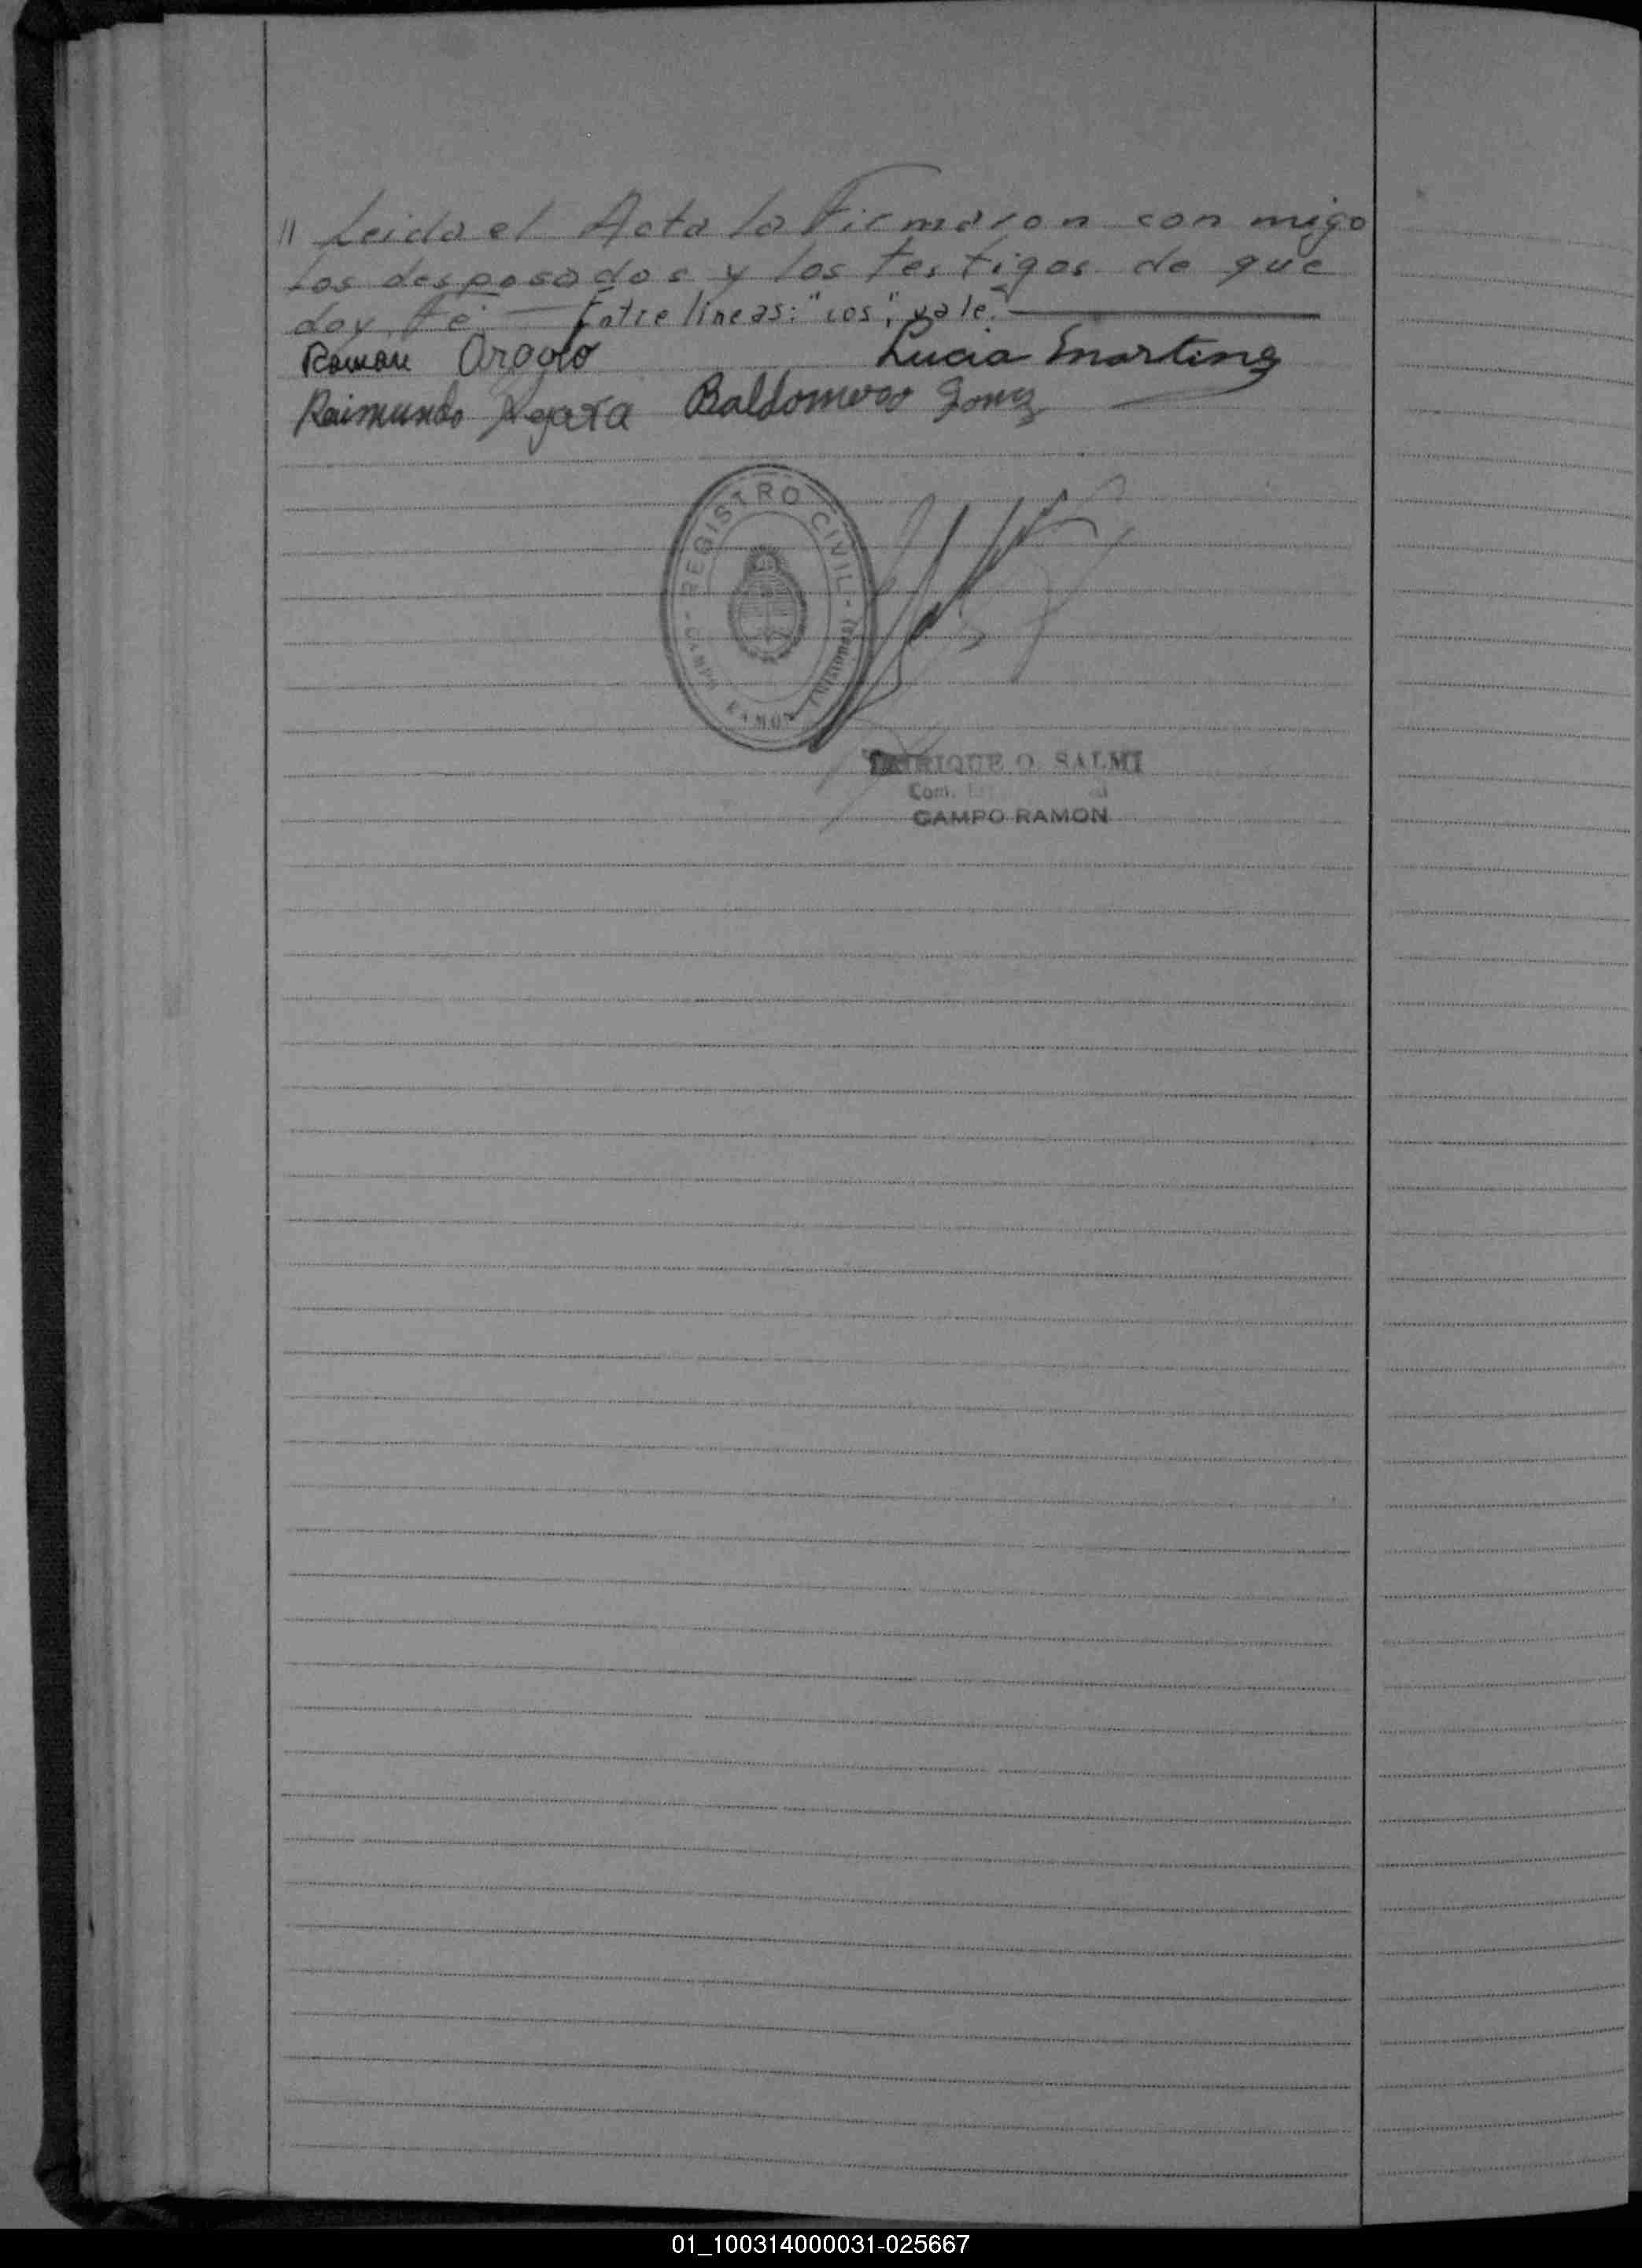 // Leida el Acta la Firmaron con migo
los desposados y los testigos de que
doy fé. — Entre líneas: "cos", vale.
Ramon
Lucia Martinez
Raimundo Baldomero Gomez
REGISTRO CIVIL
- CAMPO RAMON (Misiones) -
ENRIQUE O. SALMI
Com.
CAMPO RAMON
01_100314000031-025667